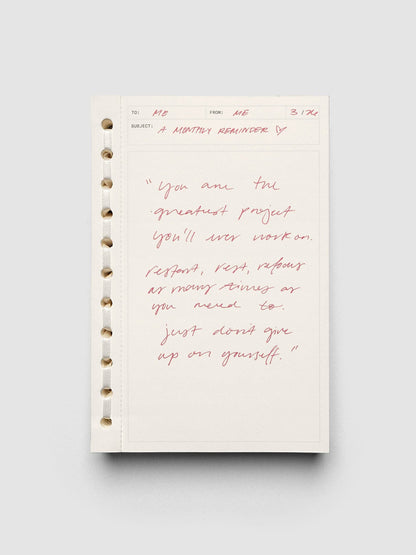 TO: ME FROM: ME
SUBJECT: A MONTHLY REMINDER ♡
"you are the
greatest project
you'll ever work on.
restart, rest, refocus
as many times as
you need to.
just don't give
up on yourself."